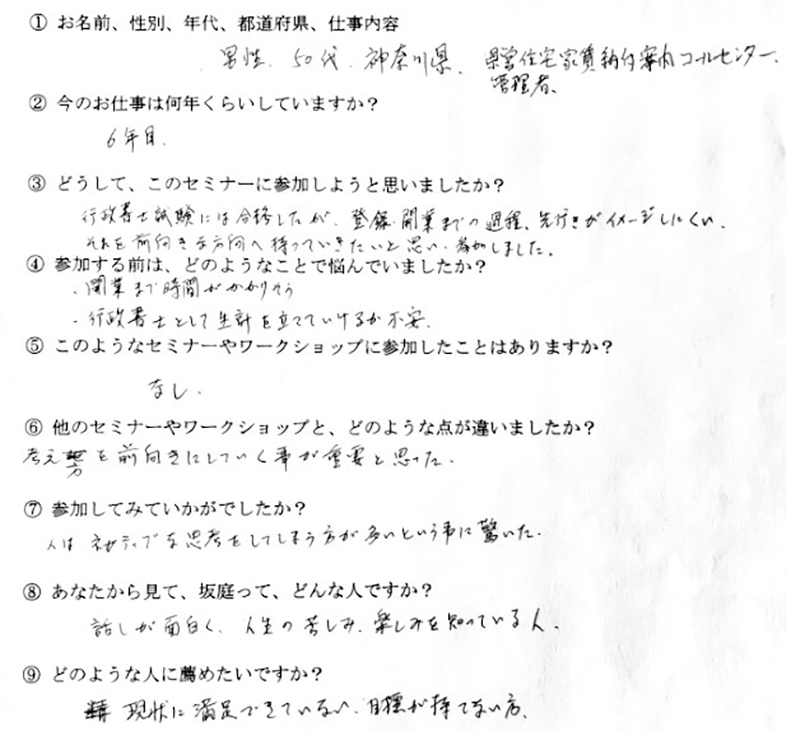 ① お名前、性別、年代、都道府県、仕事内容
男性、50代、神奈川県、県営住宅家賃納付案内コールセンター、
管理者、
② 今のお仕事は何年くらいしていますか？
6年目.
③ どうして、このセミナーに参加しようと思いましたか？
行政書士試験には合格したが、登録・開業までの過程、先行きがイメージしにくい、
それを前向きな方向へ持っていきたいと思い、参加しました。
④ 参加する前は、どのようなことで悩んでいましたか？
・開業まで時間がかかりそう
・行政書士として生計を立てていけるか不安.
⑤ このようなセミナーやワークショップに参加したことはありますか？
なし.
⑥ 他のセミナーやワークショップと、どのような点が違いましたか？
考え方を前向きにしていく事が重要と思った.
⑦ 参加してみていかがでしたか？
人はネガティブな思考をしてしまう方が多いという事に驚いた.
⑧ あなたから見て、坂庭って、どんな人ですか？
話しが面白く、人生の苦しみ、楽しみを知っている人.
⑨ どのような人に薦めたいですか？
現状に満足できていない、目標が持てない方、